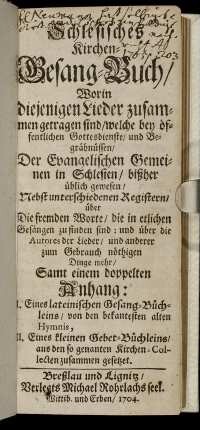 Schlesisches
Kirchen-
Gesang-Buch/
Worin
diejenigen Lieder zusam-
men getragen sind/welche bey öf-
fentlichen Gottesdienste/ und Be-
gräbnüssen/
Der Evangelischen Gemei-
nen in Schlesien/ bißher
üblich gewesen/
Nebst unterschiedenen Registern/
über
Die fremden Worte/ die in etlichen
Gesängen zu finden sind: und über die
Autores der Lieder/ und anderer
zum Gebrauch nöthigen
Dinge mehr/
Samt einem doppelten
Anhang:
I. Eines lateinischen Gesang-Büch-
leins/ von den bekantesten alten
Hymnis,
II. Eines kleinen Gebet-Büchleins/
aus den so genanten Kirchen-Col-
lecten zusammen gesetzet.
Breßlau und Lignitz/
Verlegts Michael Rohrlachs seel.
Wittib. und Erben/ 1704.